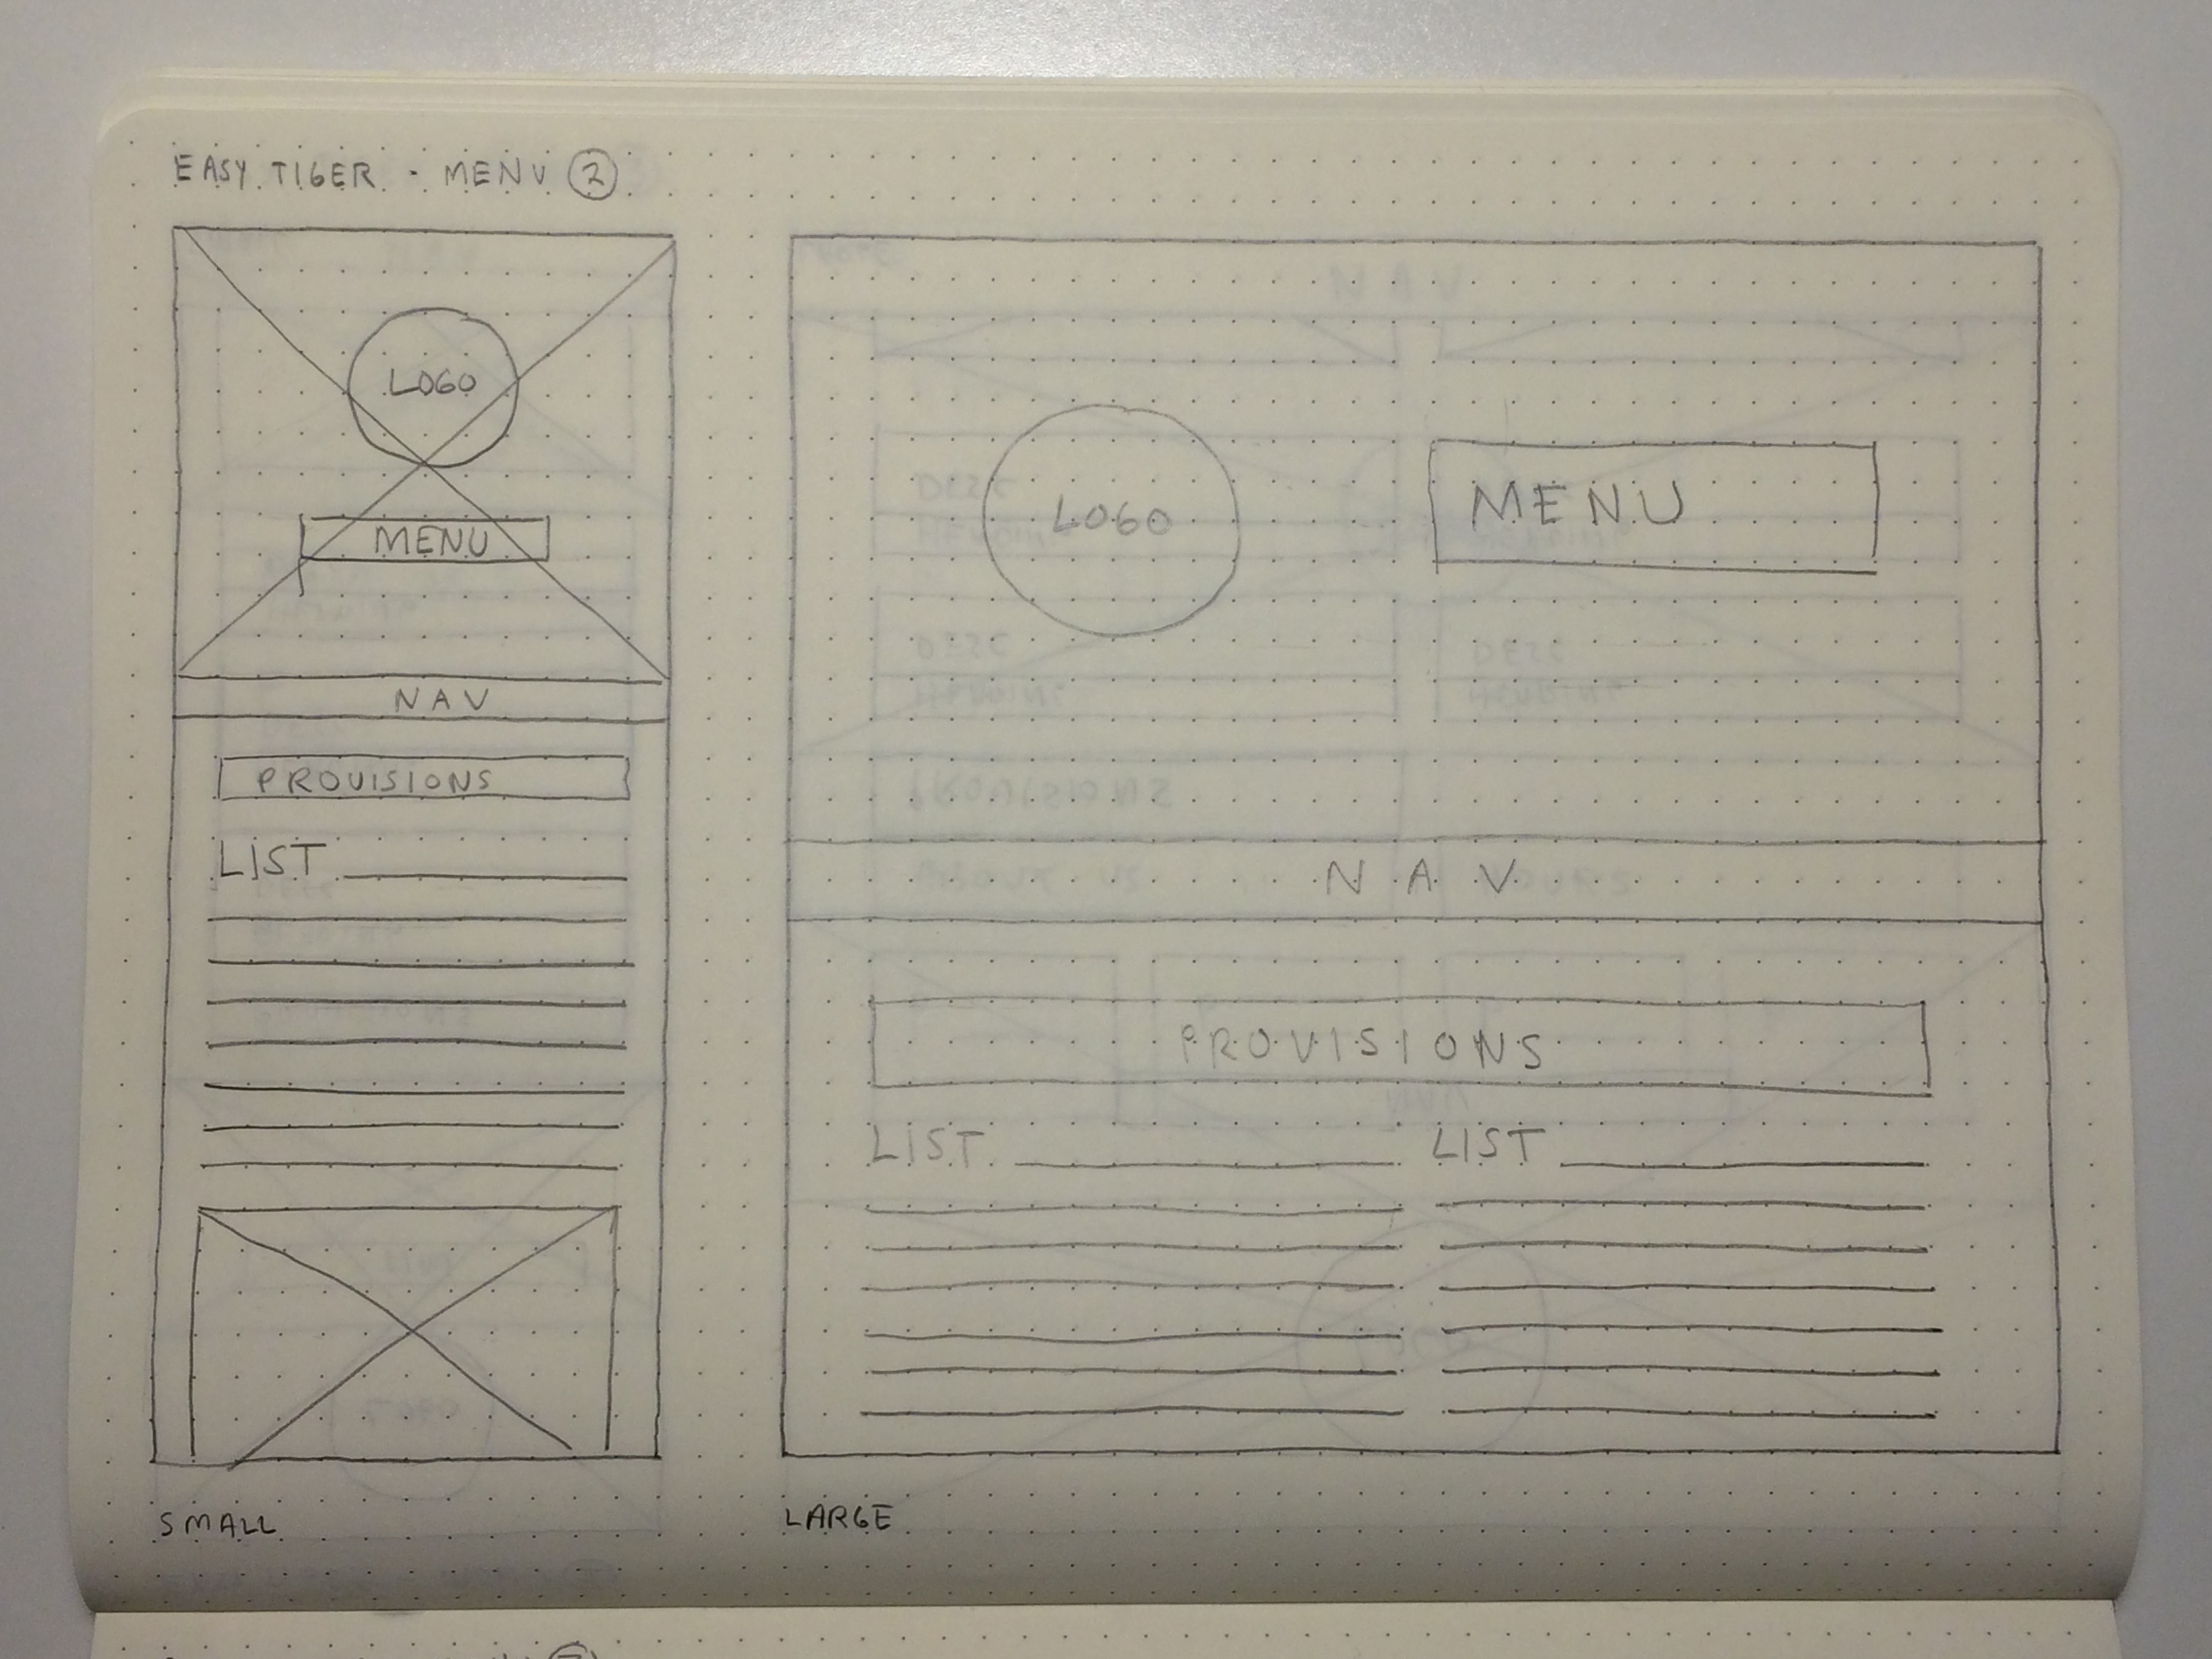 EASY TIGER - MENU 2
LOGO
MENU
NAV
PROVISIONS
LIST
SMALL
LOGO
MENU
NAV
PROVISIONS
LIST LIST
LARGE